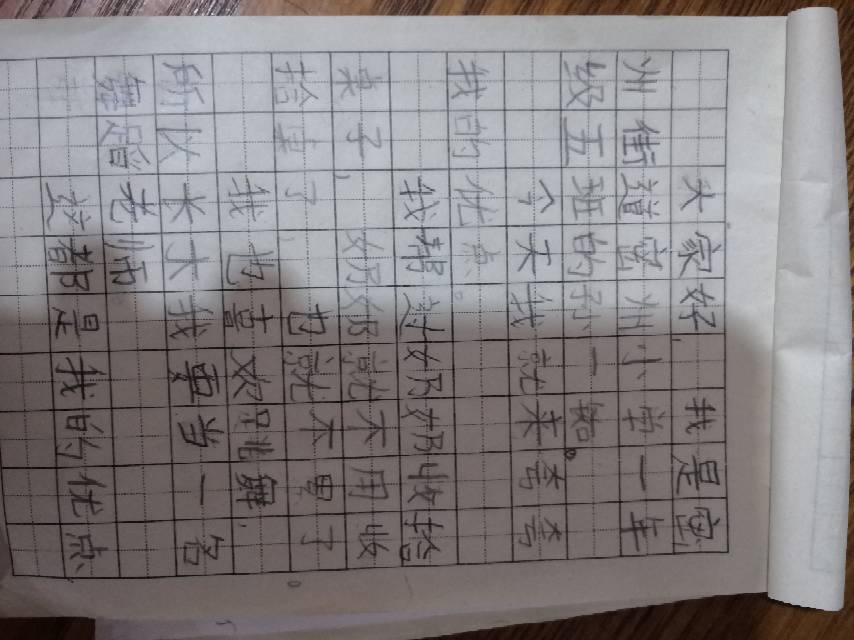 大家好,我是宣
州街道宣州小学一年
级五班的孙一铭。
今天我就来夸夸
我的优点。
我帮过奶奶收拾
桌子,奶奶就不用收
拾桌了,也就不累了
我也喜欢跳舞,
所以长大我要当一名
舞蹈老师。
这都是我的优点